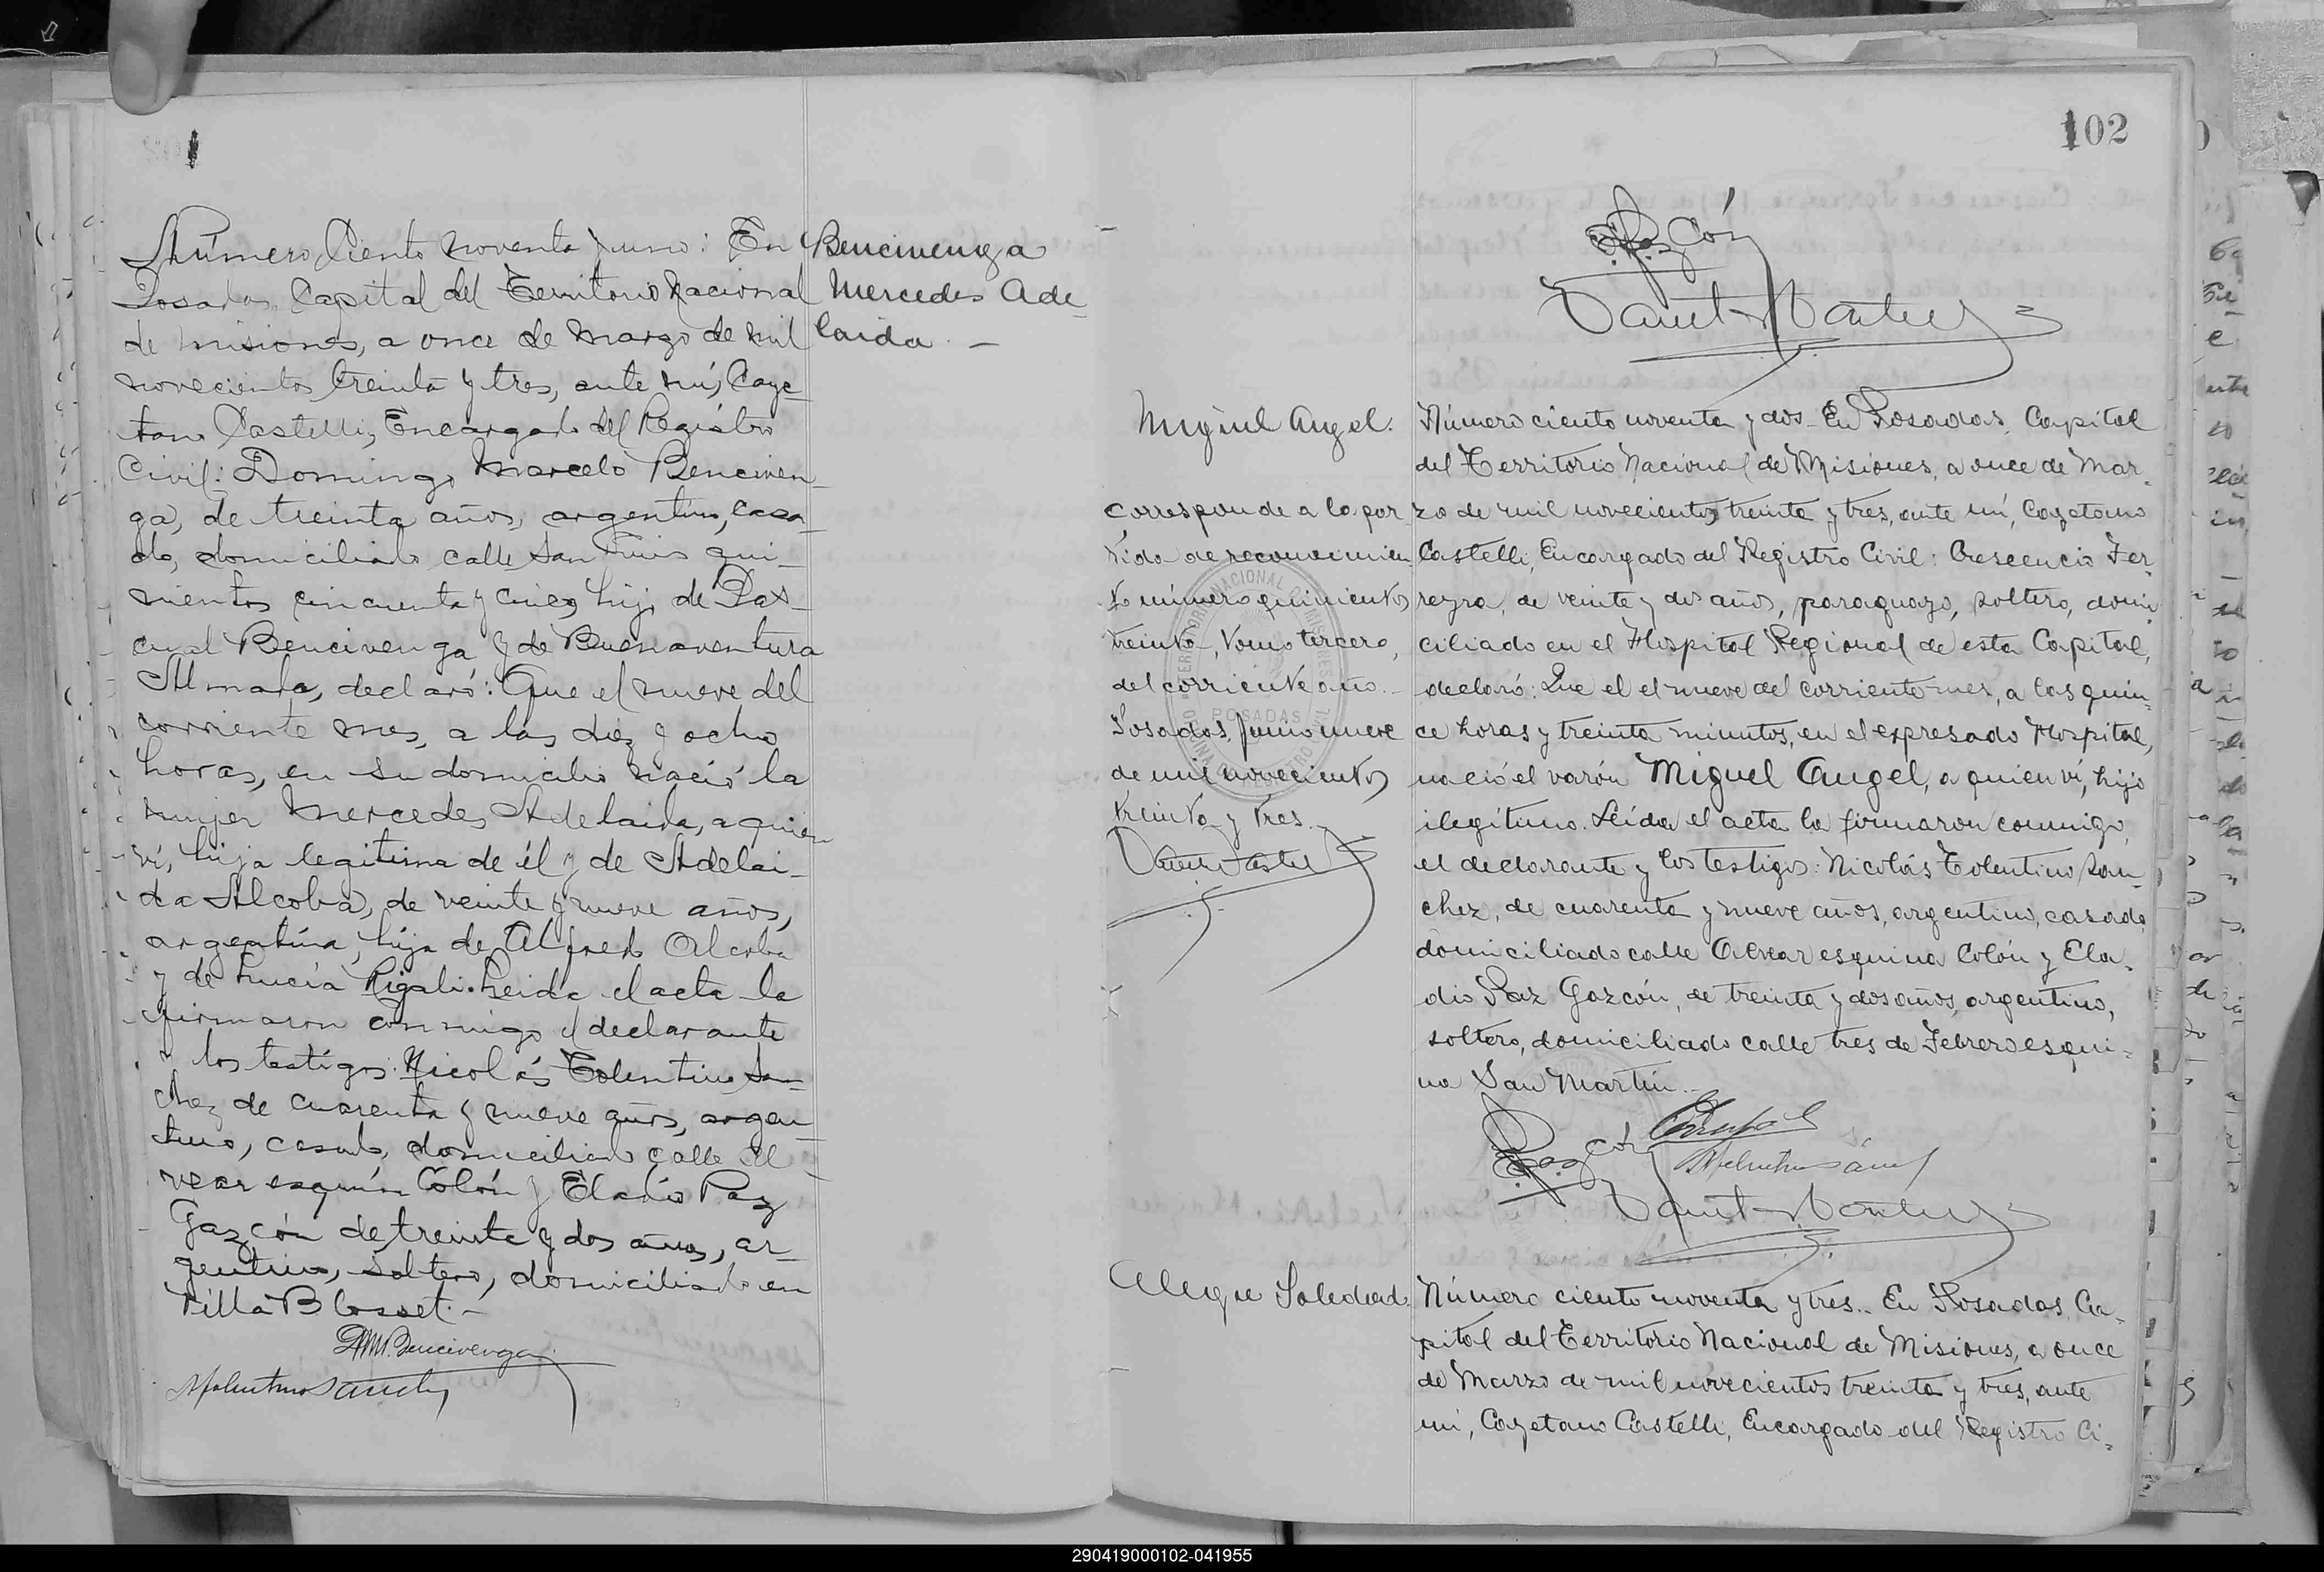 Número Ciento noventa y uno: En
Posadas, Capital del Territorio Nacional
de misiones, a once de marzo de mil
novecientos treinta y tres, ante mí, Caye-
tano Castelli, Encargado del Registro
Civil: Domingo Marcelo Benciven-
ga, de treinta años, argentino, casa-
do, domiciliado calle San Luis qui-
nientos cincuenta y cinco, hijo de Pas-
cual Bencivenga y de Buenaventura
declaró: Que el nueve del
corriente mes, a las diez y ocho
horas, en su domicilio nació la
mujer Mercedes Adelaida, a quien
ví, hija legitima de él y de Adelai-
da Alcoba, de veinte y nueve años,
argentina, hija de Alfredo Alcoba
y de Lucía Rigali. Leida el acta la
firmaron conmigo el declarante
y los testigos: Nicolás Tolentino San-
chez de cuarenta y nueve años, argen-
tino, casado, domiciliado calle Al
vear esquina Colón y Eladio Paz
Gazcón de treinta y dos años, ar-
gentino, soltero, domiciliado en
Villa Blosset.-
DM. Bencivenga
NTolentino Sanchez
Bencivenga
Mercedes Ade-
laida. -
102
E.P. Gazcón
Miguel Angel.
corresponde a la par
tida de reconocimien
to número quinientos
treinta, tomo tercero,
del corriente año.-
Posadas, Junio nueve
de mil novecientos
treinta y tres.-
NACIONAL
POSADAS
Número ciento noventa y dos. En Posadas, Capital
del Territorio Nacional de Misiones, a once de Mar-
zo de mil novecientos treinta y tres, ante mí, Cayetano
Castelli, Encargado del Registro Civil: Crescencio Fer-
reyra, de veinte y dos años, paraguayo, soltero, domi-
ciliado en el Hospital Regional de esta Capital,
declaró: Que el el nueve del corriente mes, a las quin-
ce horas y treinta minutos, en el expresado Hospital,
nació el varón Miguel Angel, a quien ví, hijo
ilegítimo. Leída el acta la firmaron conmigo,
el declarante y los testigos: Nicolás Tolentino San-
chez, de cuarenta y nueve años, argentino, casado,
domiciliado calle Alvear esquina Colón y Ela-
dio Paz Gazcón, de treinta y dos años, argentino,
soltero, domiciliado calle tres de Febrero esqui-
na San Martín.-
E.P. Gazcón
NTolentino Sánchez
Soledad
Número ciento noventa y tres.. En Posadas, Ca-
pital del Territorio Nacional de Misiones, a once
de Marzo de mil novecientos treinta y tres, ante
mí, Cayetano Castelli, Encargado del Registro Ci-
290419000102-041955